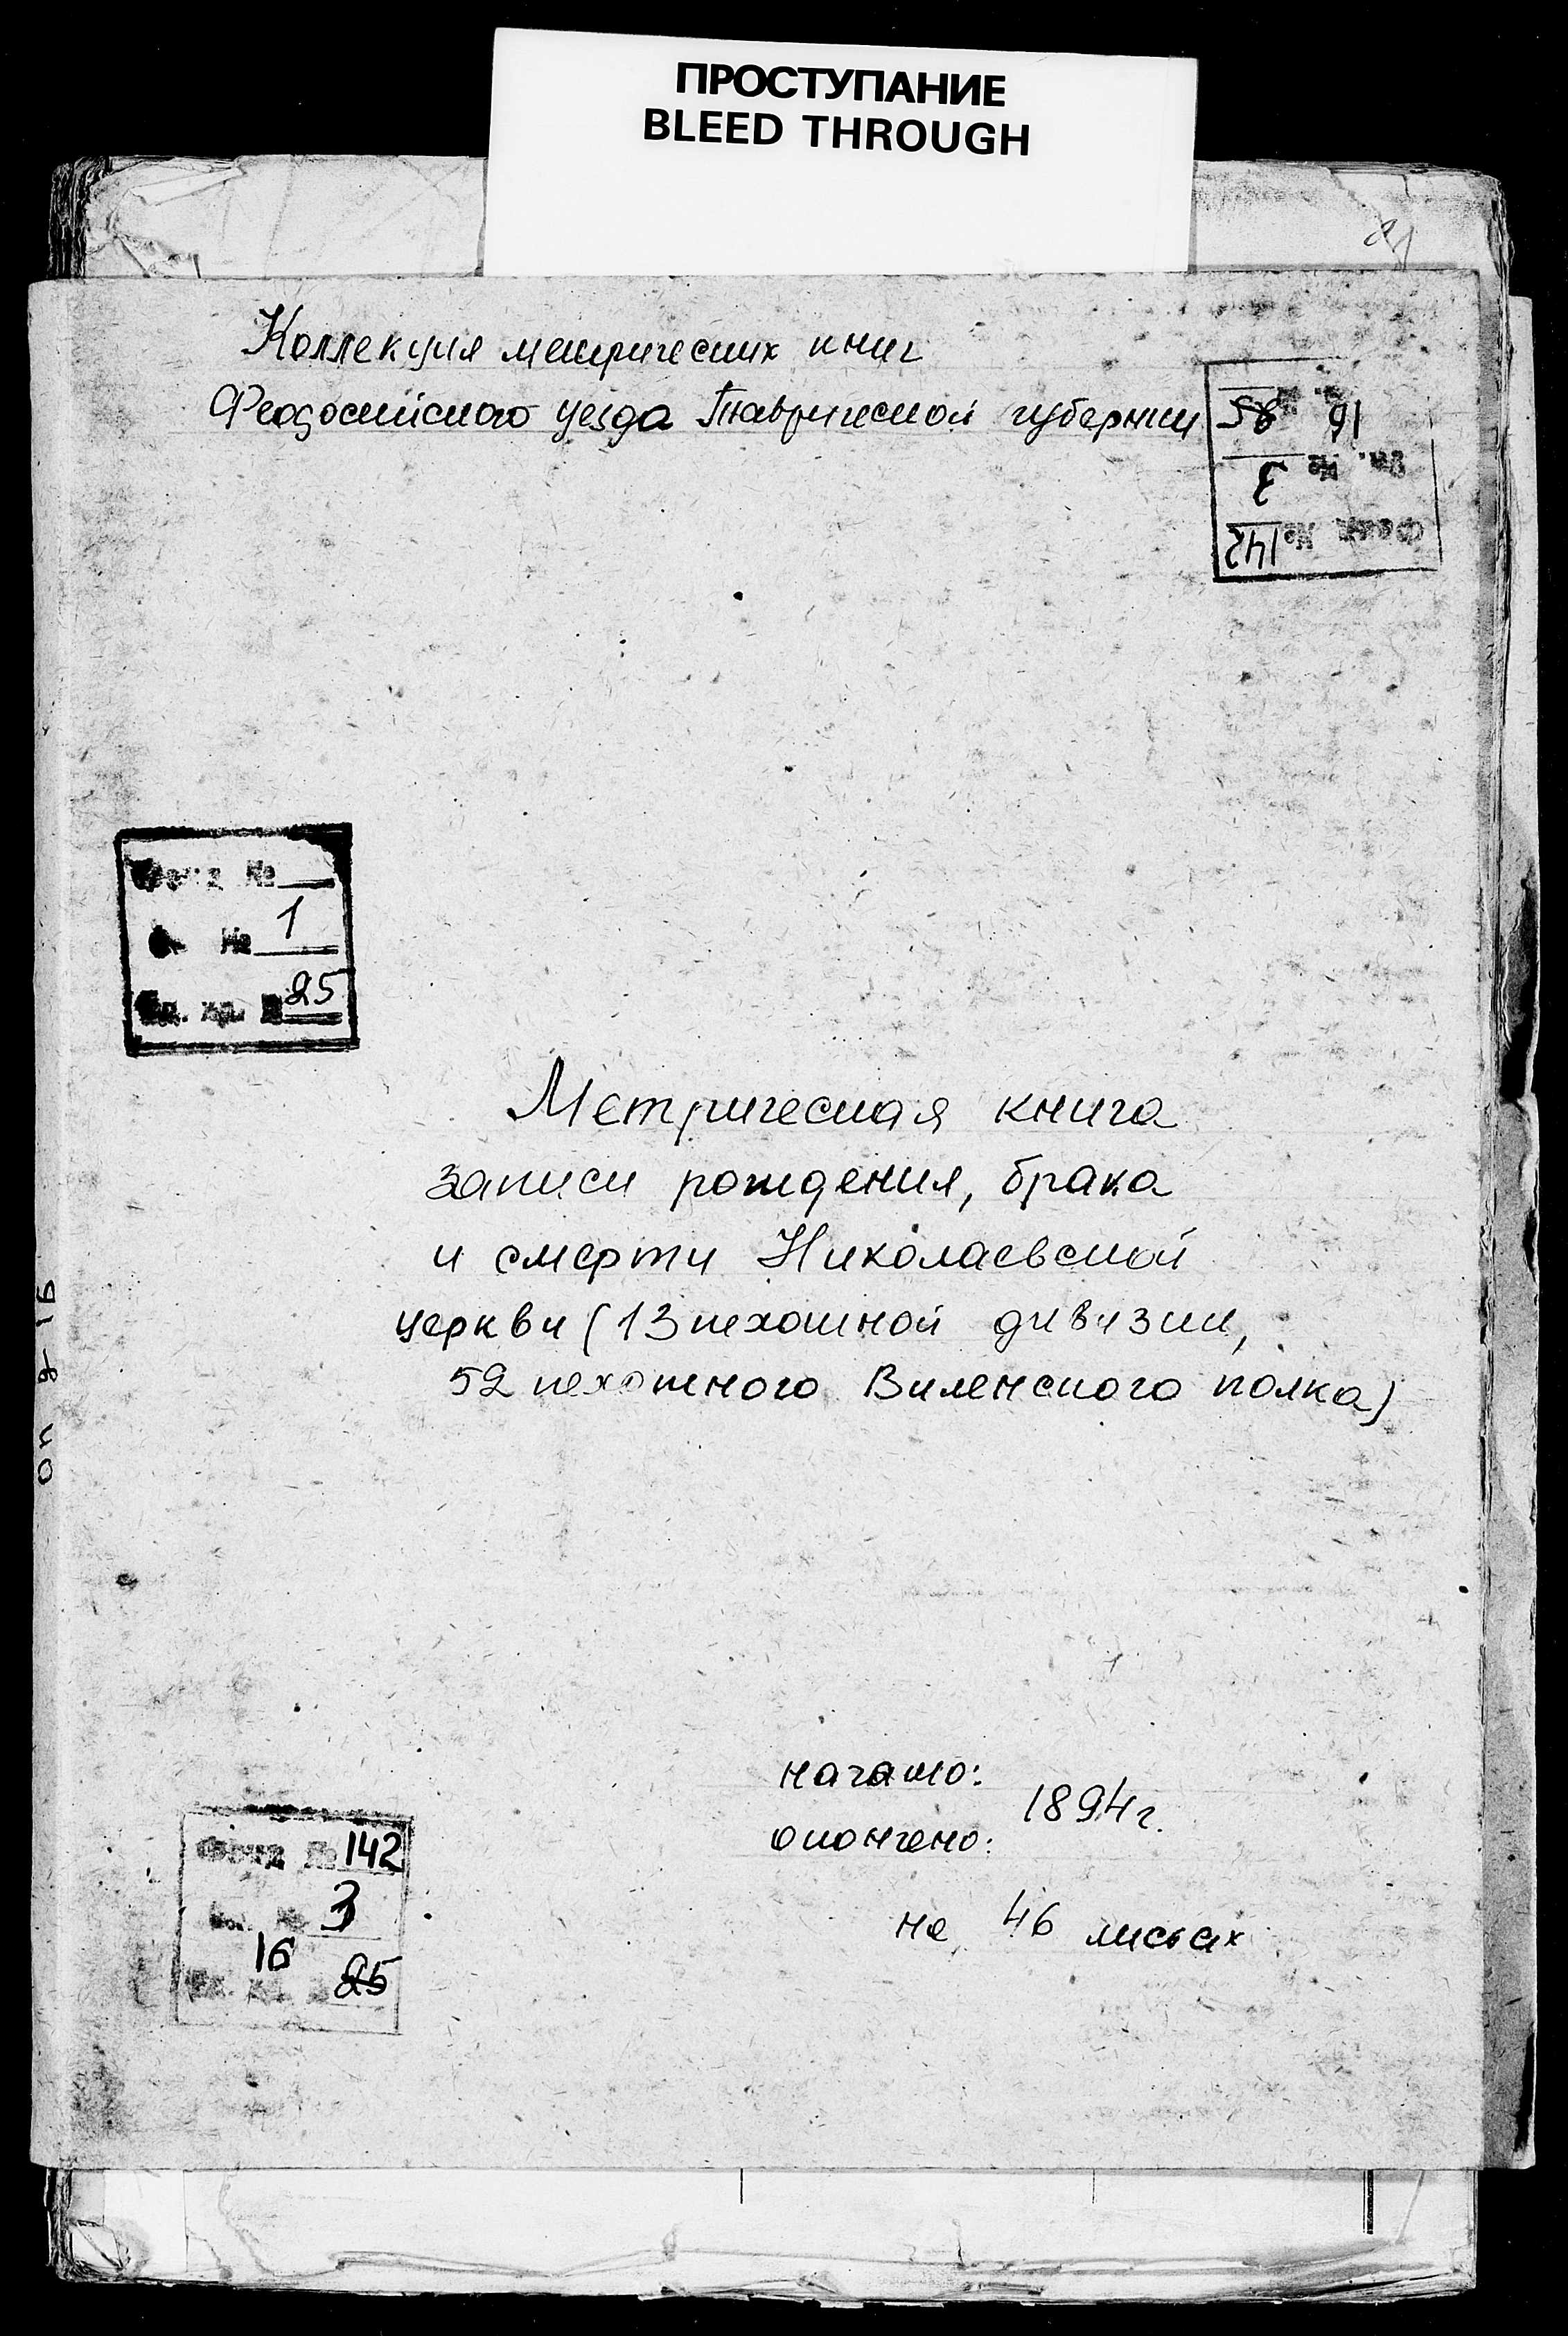 ПРОСТУПАНИЕ
BLEED THROUGH
Коллекция метрических книг
Феодосийского уезда Таврической губернии
16
Оп. № 3
Фонд № 142
Фонд №
Оп. № 1
Ед. хр. № 25
Метрическая книга
записи рождения, брака
и смерти Николаевской
церкви (13 пехотной дивизии,
52 пехотного Виленского полка)
начато:
1894 г.
окончено:
на 46 листах
Фонд № 142
Оп. № 3
16
Ед. хр. № 25